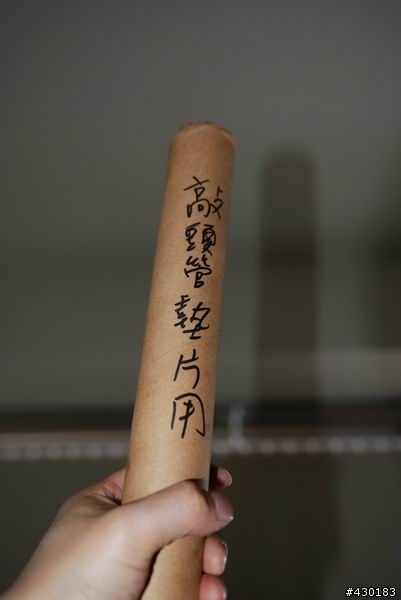 敲頭管墊片用
#430183